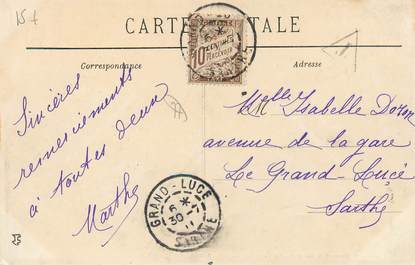 15 f
CARTE POSTALE
10 CENTIMES
À PERCEVOIR
Correspondance
Adresse
Sincères
remerciements
à toutes deux
Marthe
Melle Isabelle
avenue de la gare
Le Grand-Lucé
Sarthe
GRAND-LUCÉ
6 *
30 -7
11
SARTHE